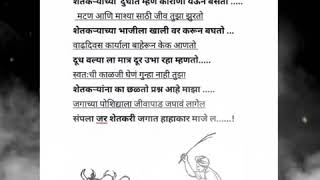 शेतकऱ्याच्या दुधात म्हणे कारोणा येऊन बसतो .....
मटण आणि माश्या साठी जीव तुझा झुरतो
शेतकऱ्याच्या भाजीला खाली वर करून बघतो ...
वाढदिवस कार्याला बाहेरून केक आणतो
दूध वल्या ला मात्र दूर उभा रहा म्हणतो.....
स्वतःची काळजी घेणं गुन्हा नाही तुझा
शेतकऱ्यांना का छळतो प्रश्न आहे माझा .....
जगाच्या पोशिद्याला जीवापाड जपावं लागेल
संपला जर शेतकरी जगात हाहाकार माजे ल......!